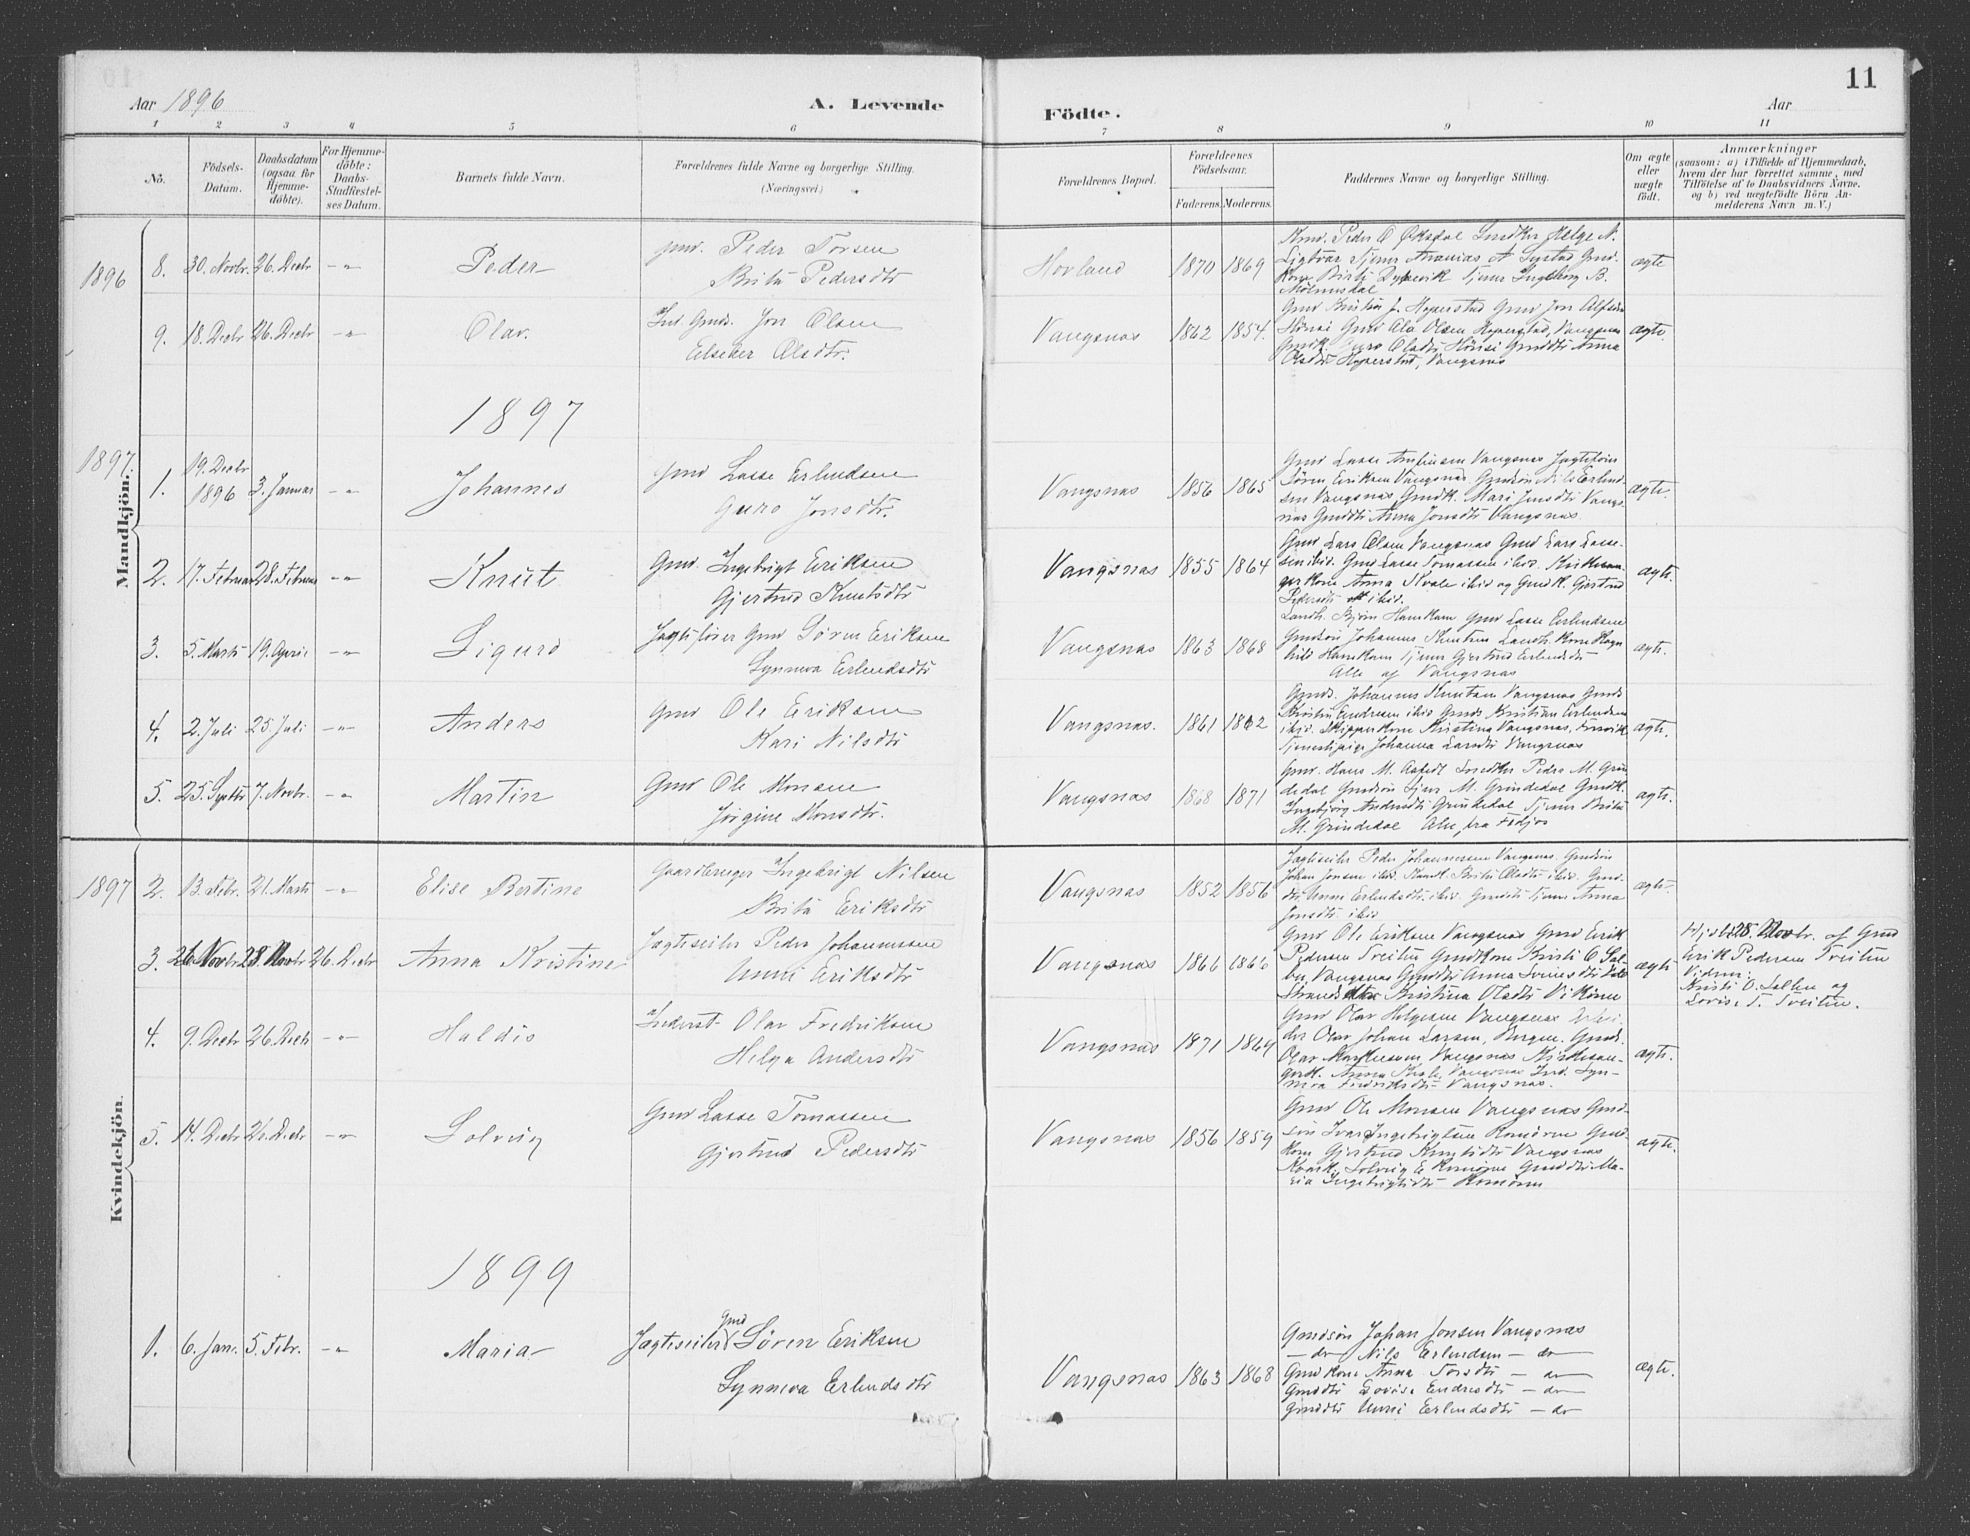 11
Aar 1896
A. Levende
Födte.
Aar
1 2 3 4 5 6 7 8 9 10 11
No.
Födsels-
Datum.
Daabsdatum
(ogsaa for
Hjemme-
döbte).
For Hjemme-
döbte:
Daabs-
Stadfæstel-
ses Datum.
Barnets fulde Navn.
Forældrenes fulde Navne og borgerlige Stilling.
(Næringsvei.)
Forældrenes Bopæl.
Forældrenes
Födselsaar.
Faderens. Moderens.
Faddernes Navne og borgerlige Stilling.
Om ægte
eller
uægte
födt.
Anmærkninger
(saasom: a) i Tilfælde af Hjemmedaab,
hvem der har forrettet samme, med
Tilföielse af to Daabsvidners Navne,
og b) ved uegtefödte Börn An-
melderens Navn m. V.)
Mandkjön.
1896
8. 30. Novbr. 26. Decbr -"- Peder
Gmd. Peder Torsen
Brita Pedersdtr
Hovland 1870 1869
Kmd. Peder O Øksdal Helge N.
Tjener Ananias A Systad Gmd.
Kone Tjener Ingeborg B.
Mölmesdal
ægte
9. 18. Decbr 26. Decbr -"- Olav.
Ind. Gmds. Jon Olsen
Elseber Olsdtr.
Vangsnas 1862 1854.
Gmd Kristen J. Hoperstad Gmd Jon Alfsen
Hönsi Gmd Ola Olsen Hoperstad, Vangsnas
Gmdk. Guro Olsdtr Hönsi Gmddtr Anna
Olsdtr Hoperstad, Vangsnas
ægte.
1897
1897.
1. 19. Decbr
1896 3. Januar -"- Johannes
Gmd Lasse Erlendsen
Guro Jonsdtr.
Vangsnas 1856 1865
Gmd Lasse Vangsnas Jagtskön
Sören Eriksen Vangsnas Gmdsön Nils Erlend-
sen Vangsnas, Gmdk. Mari Jonsdtr Vangs-
nas Gmddtr Anna Jonsdtr Vangsnas.
ægte.
2. 17. Februar 28. Februar -"- Knut
Gmd. Ingebrigt Eriksen
Gjertrud Knutsdtr
Vangsnas 1855 1864
Gmd Lars Olsen Vangsnas Gmd Lars Lasse-
sen ibid. Gmd Lasse Tomassen ibid. Kirkesan-
gerkone Anna Kvale ibid og Gmdk. Gjertrud
Pedersdtr ibid.
ægte.
3. 5. Marts 19. April -"- Sigurd
Jagtsfører Gmd Sören Eriksen
Synneva Erlendsdtr
Vangsnas 1863 1868
Landh. Björn Gmd Lasse Erlendsen
Gmdsön Johannes Knutsen Landh. Kone Ragn
hild Tjener Gjertrud Erlendsdtr
Alle af Vangsnas
ægte.
4. 2. Juli 25. Juli -"- Anders
Gmd Ole Eriksen
Kari Nilsdtr
Vangsnas. 1861 1862
Gmds. Johannes Knutsen Vangsnas Gmds
Kristen Endresen ibid Gmds Kristian Erlendsen
ibid. Skipperkone Kristina Vangsnas,
Tjenestpige Johanna Larsdtr Vangsnas
ægte.
5. 25. Septbr 7. Novbr. -"- Martin
Gmd Ole Monsen
Jörgine Monsdtr.
Vangsnas 1868 1871
Gmd. Hans M. Peder M. Grin
dedal Gmdsön M. Grindedal Gmdk.
Ingebjörg Andersdtr Grindedal Tjener Brita
M. Grindedal Alle fra Fedjos
ægte.
Kvindekjön.
1897
2. 13. Febr. 21. Marts -"- Elise Bertine
Gaardbruger Ingebrigt Nilsen
Brita Eriksdtr
Vangsnas 1852 1856
Jagtseiler Peder Johannessen Vangsnas. Gmdsön
Johan Jonsen ibid. Brita Olsdtr ibid. Gmd-
dtr Unni Erlendsdtr ibid. Gmddtr Tjener Anna
Jonsdtr ibid
ægte.
3. 26 Novbr 28 Novbr 26. Decbr Anna Kristine
Jagtseiler Peder Johannessen
Unni Eriksdtr
Vangsnas 1866 1866
Gmd Ole Eriksen Vangsnas Gmd Erik
Pedersen Treiten Gmdkone Kristi O Sal-
ben, Vangsnas Gmddtr Anna
Kristina Olsdtr Vikören
ægte
28. Novbr. af Gmd
Erik Pedersen Treiten
Vidner:
Kristi O. Salben og
Lovise T. Treiten.
4. 9. Decbr 26. Decbr -"- Haldis
Inderst Olav Fredriksen
Helga Andersdtr
Vangsnas 1871 1869
Gmd Olav Helgesen Vangsnas Arbei-
der Olav Johan Larsen, Bergen. Gmd.
Olav Vangsnas Kirkesan-
gerk. Anna Kvale Vangsnas Ind. Syn-
neva Fredriksdtr Vangsnas.
ægte.
5. 14. Decbr 26. Decbr -"- Solveig
Gmd Lasse Tomassen
Gjertrud Pedersdtr
Vangsnas 1856 1859
Gmd Ole Monsen Vangsnas Gmd-
sön Ivar Ingebrigtsen Romören Gmd-
kone Gjertrud Knutsdtr Vangsnas
Solveig E Romören Gmddtr Ma-
ria Ingebrigtsdtr Romören
ægte.
1899
1. 6. Jan. 5. Febr. -"- Maria
Gmd
Jægtseiler Sören Eriksen
Synneva Erlendsdtr
Vangsnas 1863 1868
Gmdsön Johan Jonsen Vangsnas
— do Nils Erlendsen — do
Gmdkone Anna Torsdtr — do
Gmddtr Lovise Endresdtr — do
Gmddtr Unni Erlendsdtr — do
ægte.